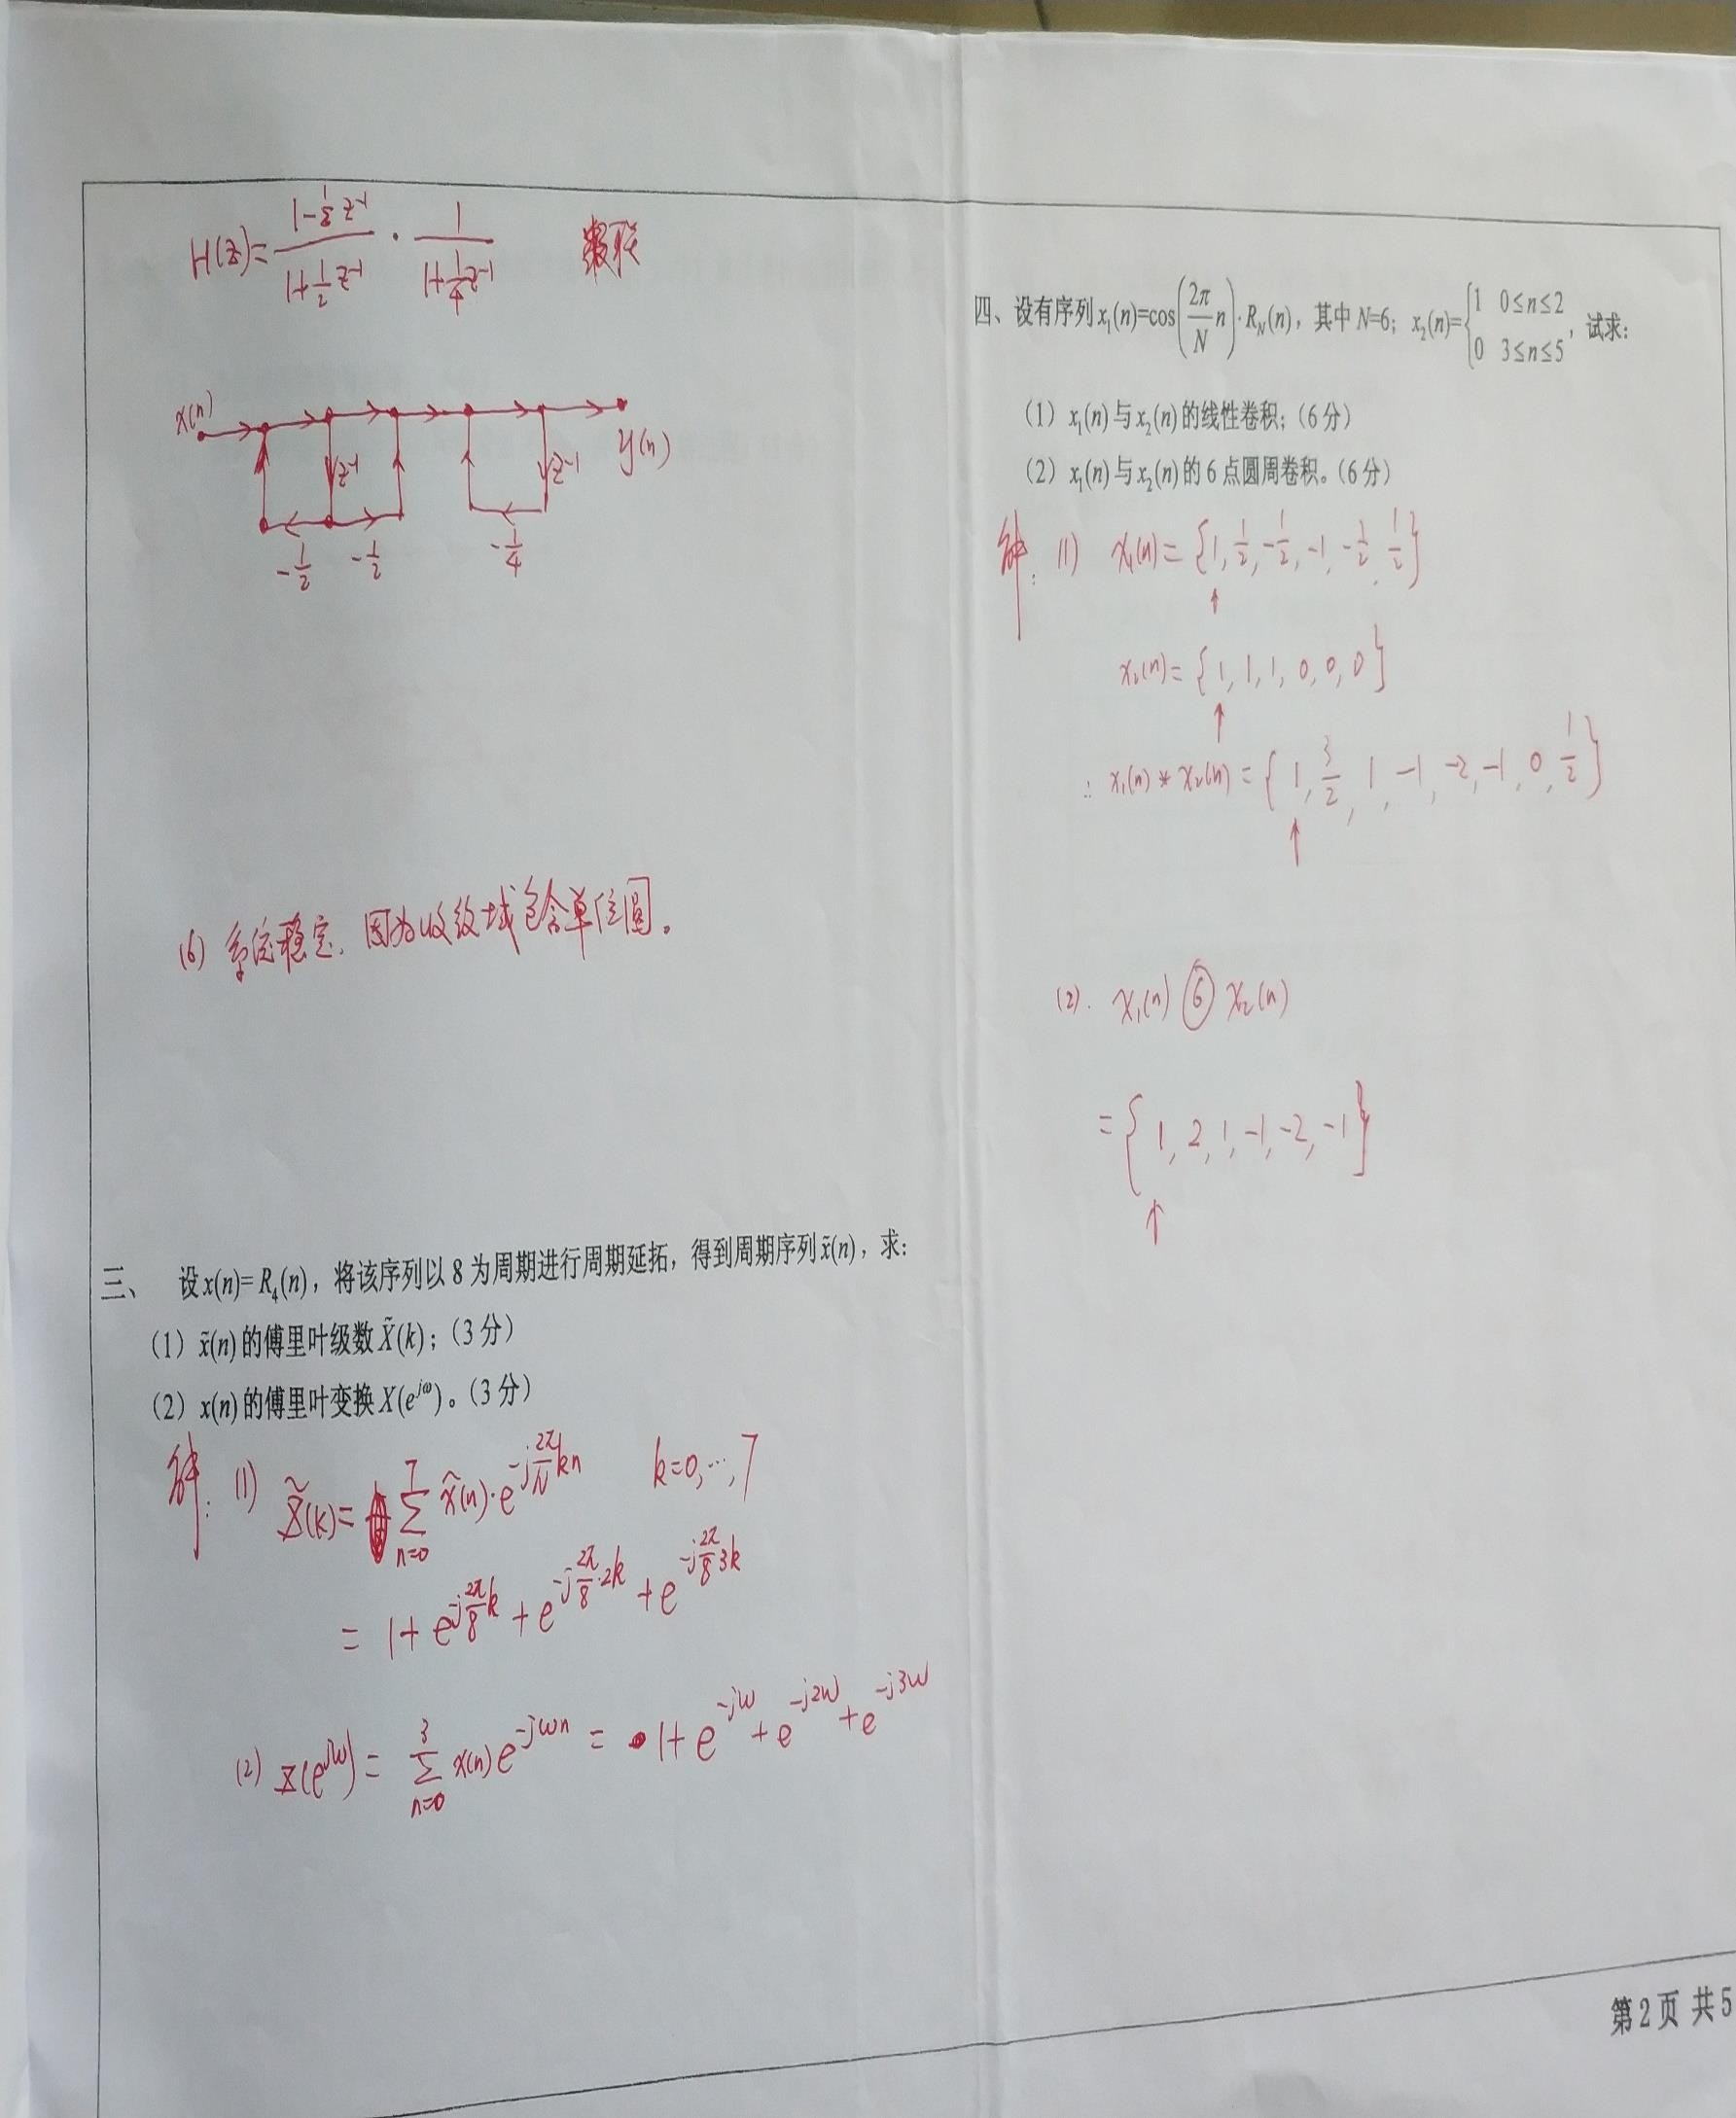 H(z)= (1-½z⁻¹)/(1+½z⁻¹) · 1/(1+¼z⁻¹) 级联
x(n)
z⁻¹ z⁻¹ y(n)
-½ -½ -¼
(6) 系统稳定, 因为收敛域包含单位圆。
三、 设x(n)= R₄(n)，将该序列以 8 为周期进行周期延拓，得到周期序列x̃(n)，求：
（1）x̃(n)的傅里叶级数X̃(k)；（3 分）
（2）x(n)的傅里叶变换X(e^{jω})。（3 分）
解: (1) X̃(k)= Σ_{n=0}^{7} x̃(n)·e^{-j(2π/N)kn} k=0,…,7
= 1+e^{-j(2π/8)k}+e^{-j(2π/8)·2k}+e^{-j(2π/8)3k}
(2) X(e^{jω})= Σ_{n=0}^{3} x(n)e^{-jωn} = 1+e^{-jω}+e^{-j2ω}+e^{-j3ω}
四、设有序列x₁(n)=cos(2π/N n)·R_N(n)，其中N=6；x₂(n)={1 0≤n≤2
0 3≤n≤5，试求：
（1）x₁(n)与x₂(n)的线性卷积；（6 分）
（2）x₁(n)与x₂(n)的 6 点圆周卷积。（6 分）
解: (1) x₁(n)={1,½,-½,-1,-½,½}
↑
x₂(n)={1,1,1,0,0,0}
↑
∴ x₁(n)*x₂(n)={1,3/2,1,-1,-2,-1,0,½}
↑
(2). x₁(n)⑥x₂(n)
={1,2,1,-1,-2,-1}
↑
第 2 页 共 5